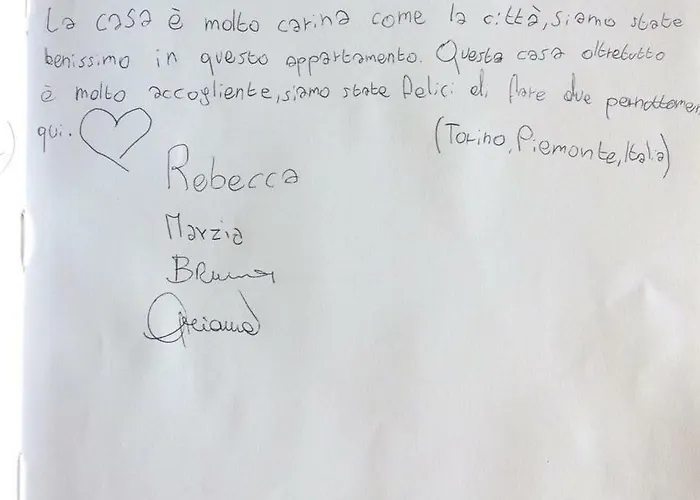 La casa è molto carina come la città, siamo state
benissimo in questo appartamento. Questa casa oltretutto
è molto accogliente, siamo state felici di fare due pernottamen
qui.
(Torino, Piemonte, Italia)
Rebecca
Marzia
Bruna